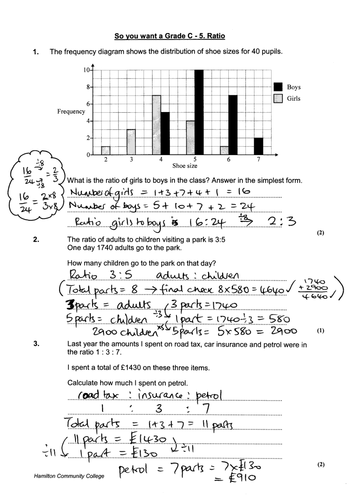 So you want a Grade C - 5. Ratio
1. The frequency diagram shows the distribution of shoe sizes for 40 pupils.
10
8
6
4
2
Frequency
2 3 4 5 6 7
Shoe size
Boys
Girls
What is the ratio of girls to boys in the class? Answer in the simplest form.
16/24 ÷8/÷8 = 2/3
16/24 = 2×8/3×8
Number of girls = 1+3+7+4+1 = 16
Number of boys = 5+10+7+2 = 24
Ratio girls to boys is 16:24 ÷8 → 2:3
(2)
2. The ratio of adults to children visiting a park is 3:5
One day 1740 adults go to the park.
How many children go to the park on that day?
Ratio 3:5 adults : children
Total parts = 8 → final check 8×580 = 4640 ✓
1740
+2900
4640
3 parts = adults 3 parts = 1740
5 parts = children ÷3 1 part = 1740÷3 = 580
2900 children ×5 5 parts = 5×580 = 2900
(1)
3. Last year the amounts I spent on road tax, car insurance and petrol were in
the ratio 1 : 3 : 7.
I spent a total of £1430 on these three items.
Calculate how much I spent on petrol.
road tax : insurance : petrol
1 : 3 : 7
Total parts = 1+3+7 = 11 parts
11 parts = £1430
÷11 1 part = £130 ÷11
petrol = 7 parts = 7×£130
= £910
(2)
Hamilton Community College